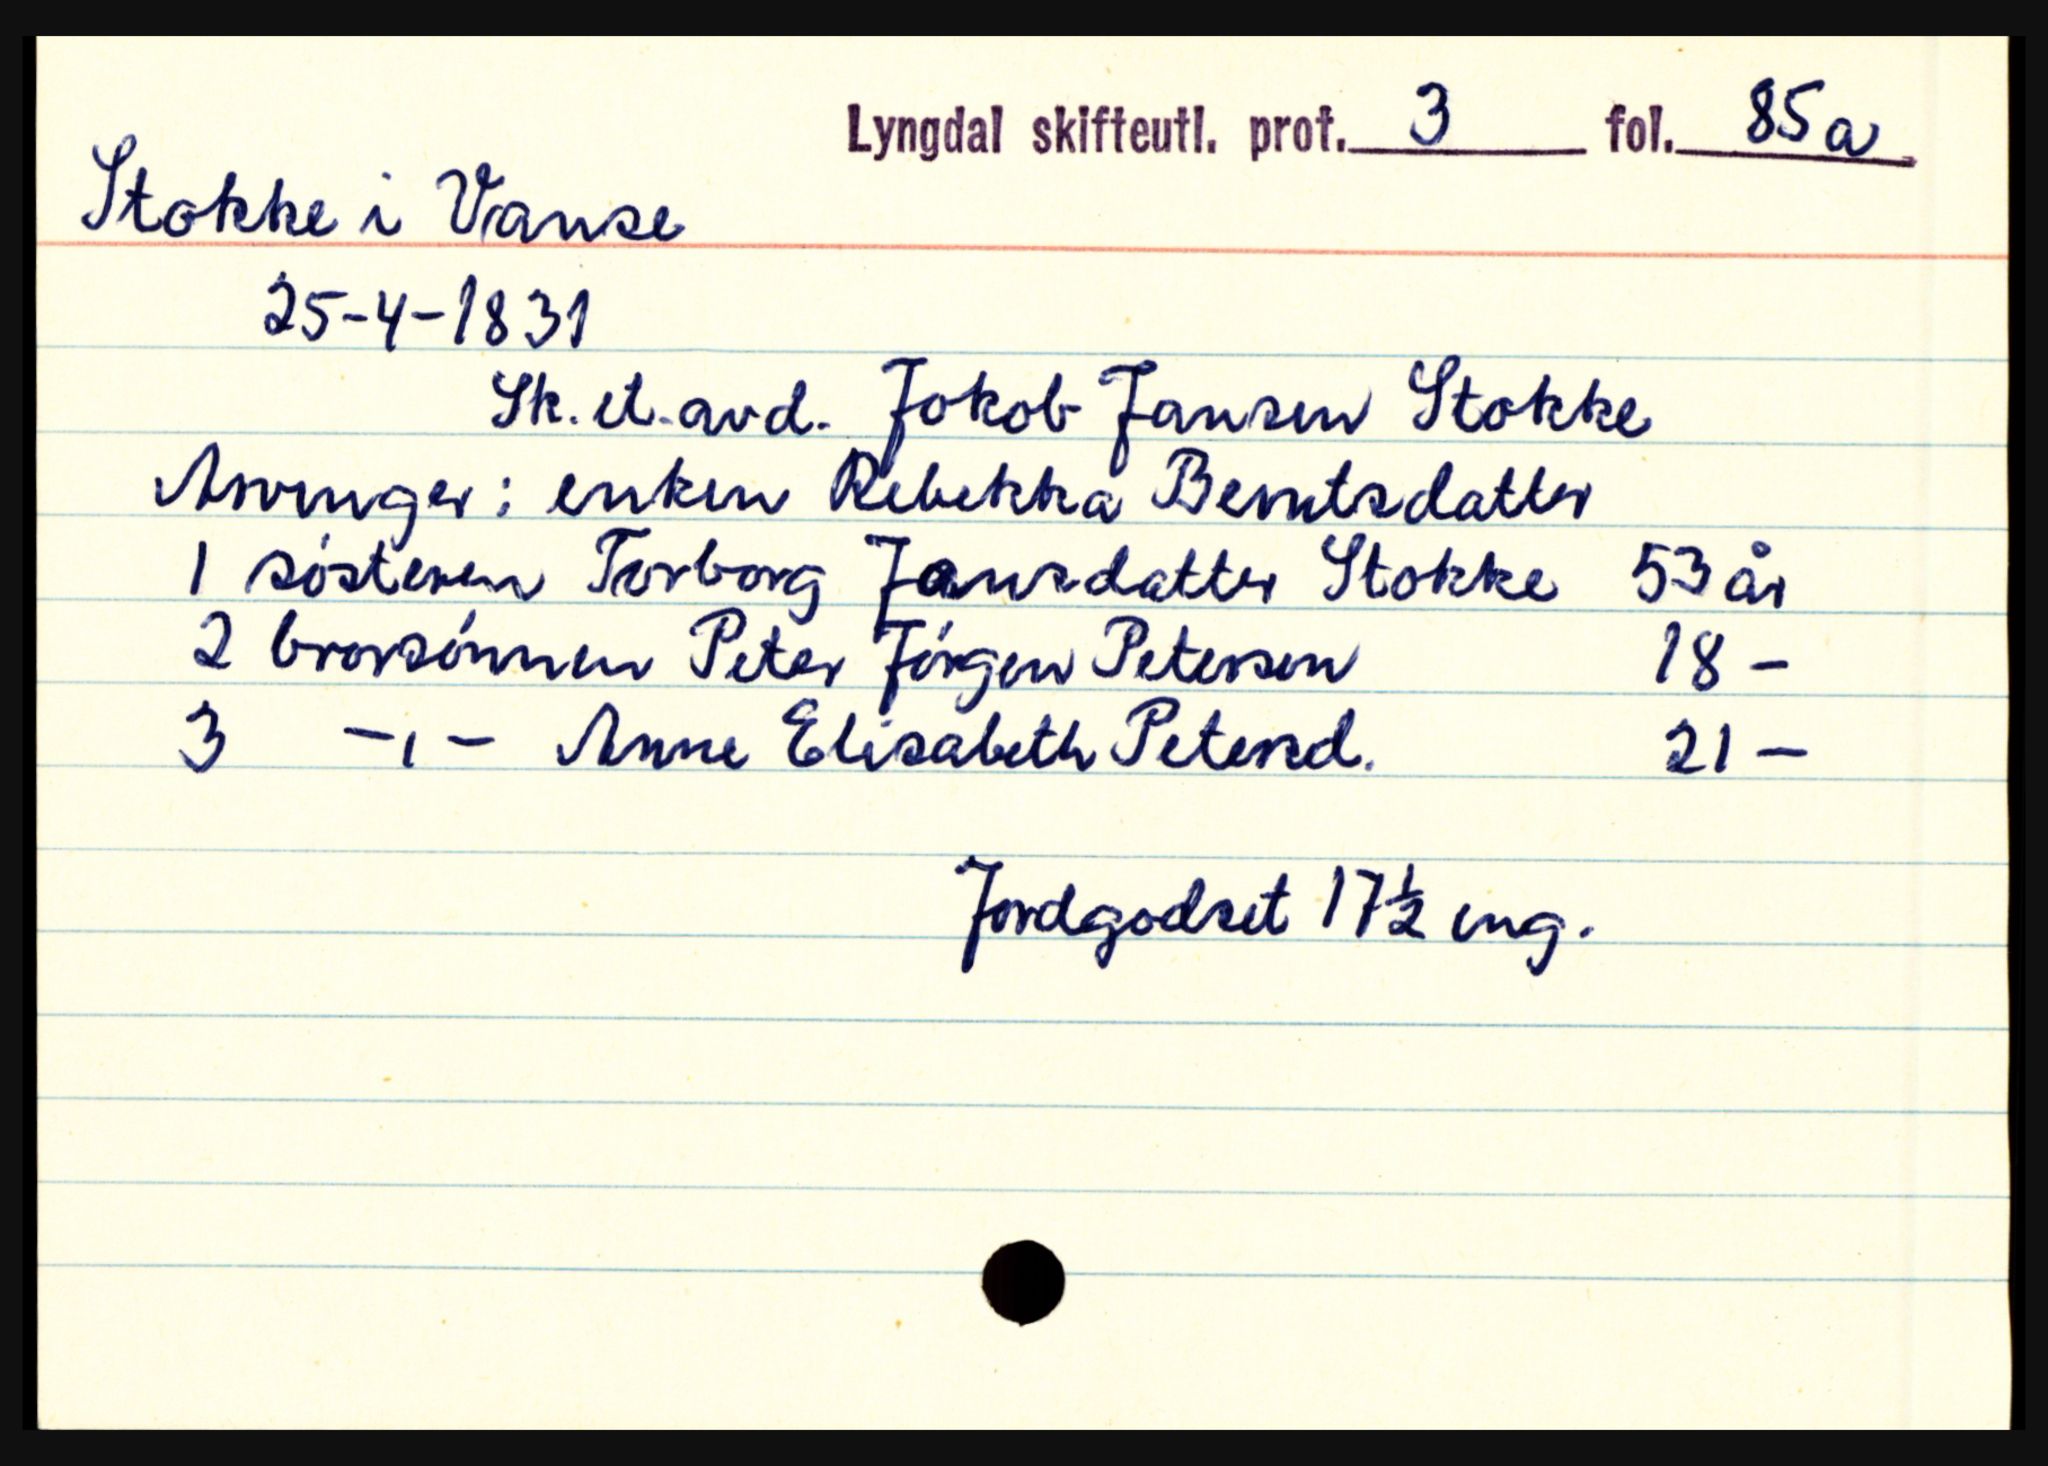 Lyngdal skifteutl. prot. 3 fol. 85a
Stokke i Vanse
25-4-1831
Sk. et. avd. Jokob Jansen Stokke
Arvinger: enken Rebekka Berntsdatter
1 søsteren Torborg Jansdatter Stokke 53 år
2 brorsønnen Peter Jørgen Petersen 18 -
3 -ı- Anne Elisabeth Petersd. 21 -
Jordgodset 17½ eng.